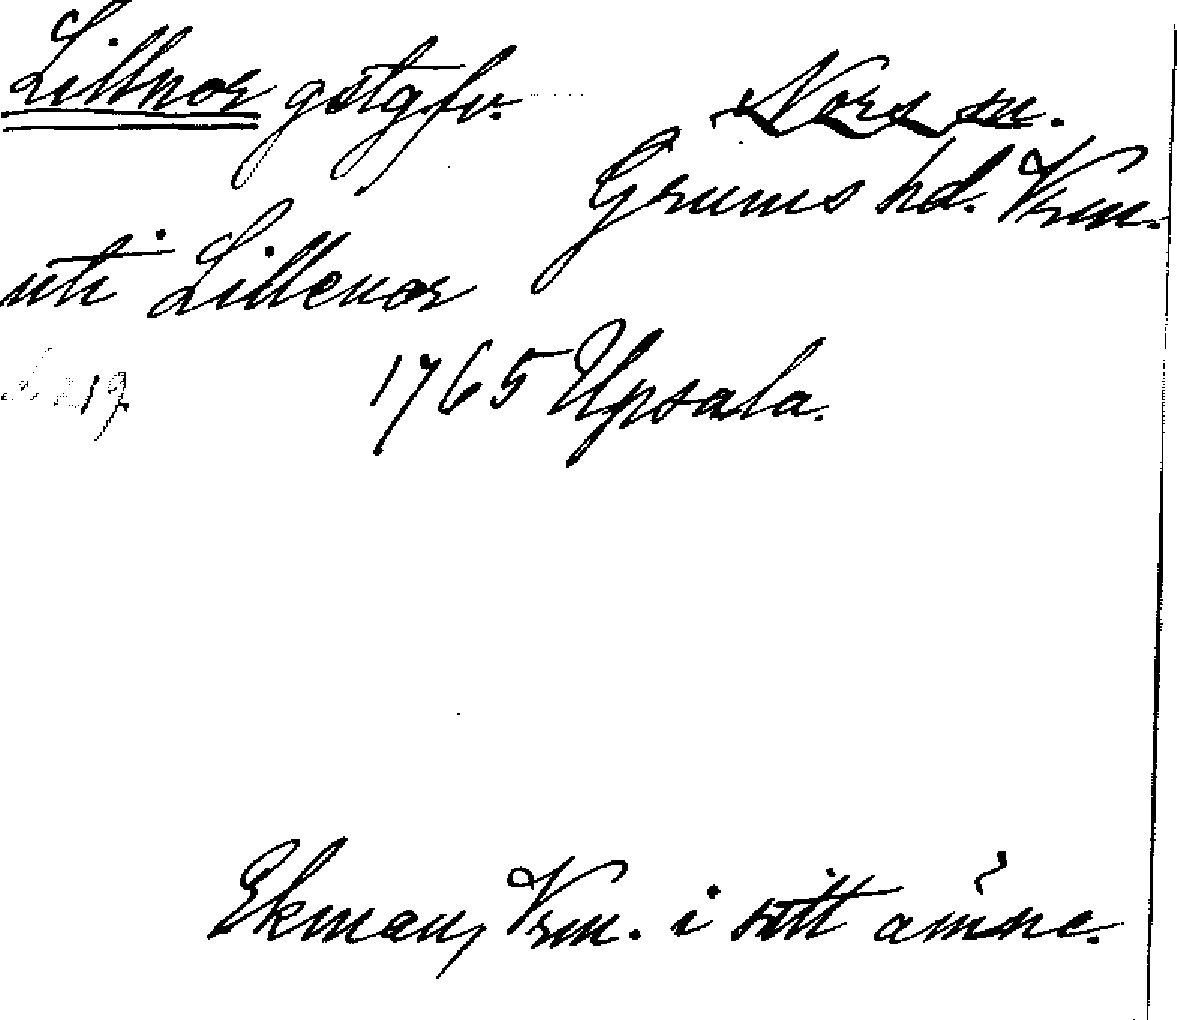 Lillnor gstgfv.
Nors sn.
Grums hd. Vrm.
uti Lillenor
19
1765 Upsala.
Ekman, Vrm. i sitt ämne.